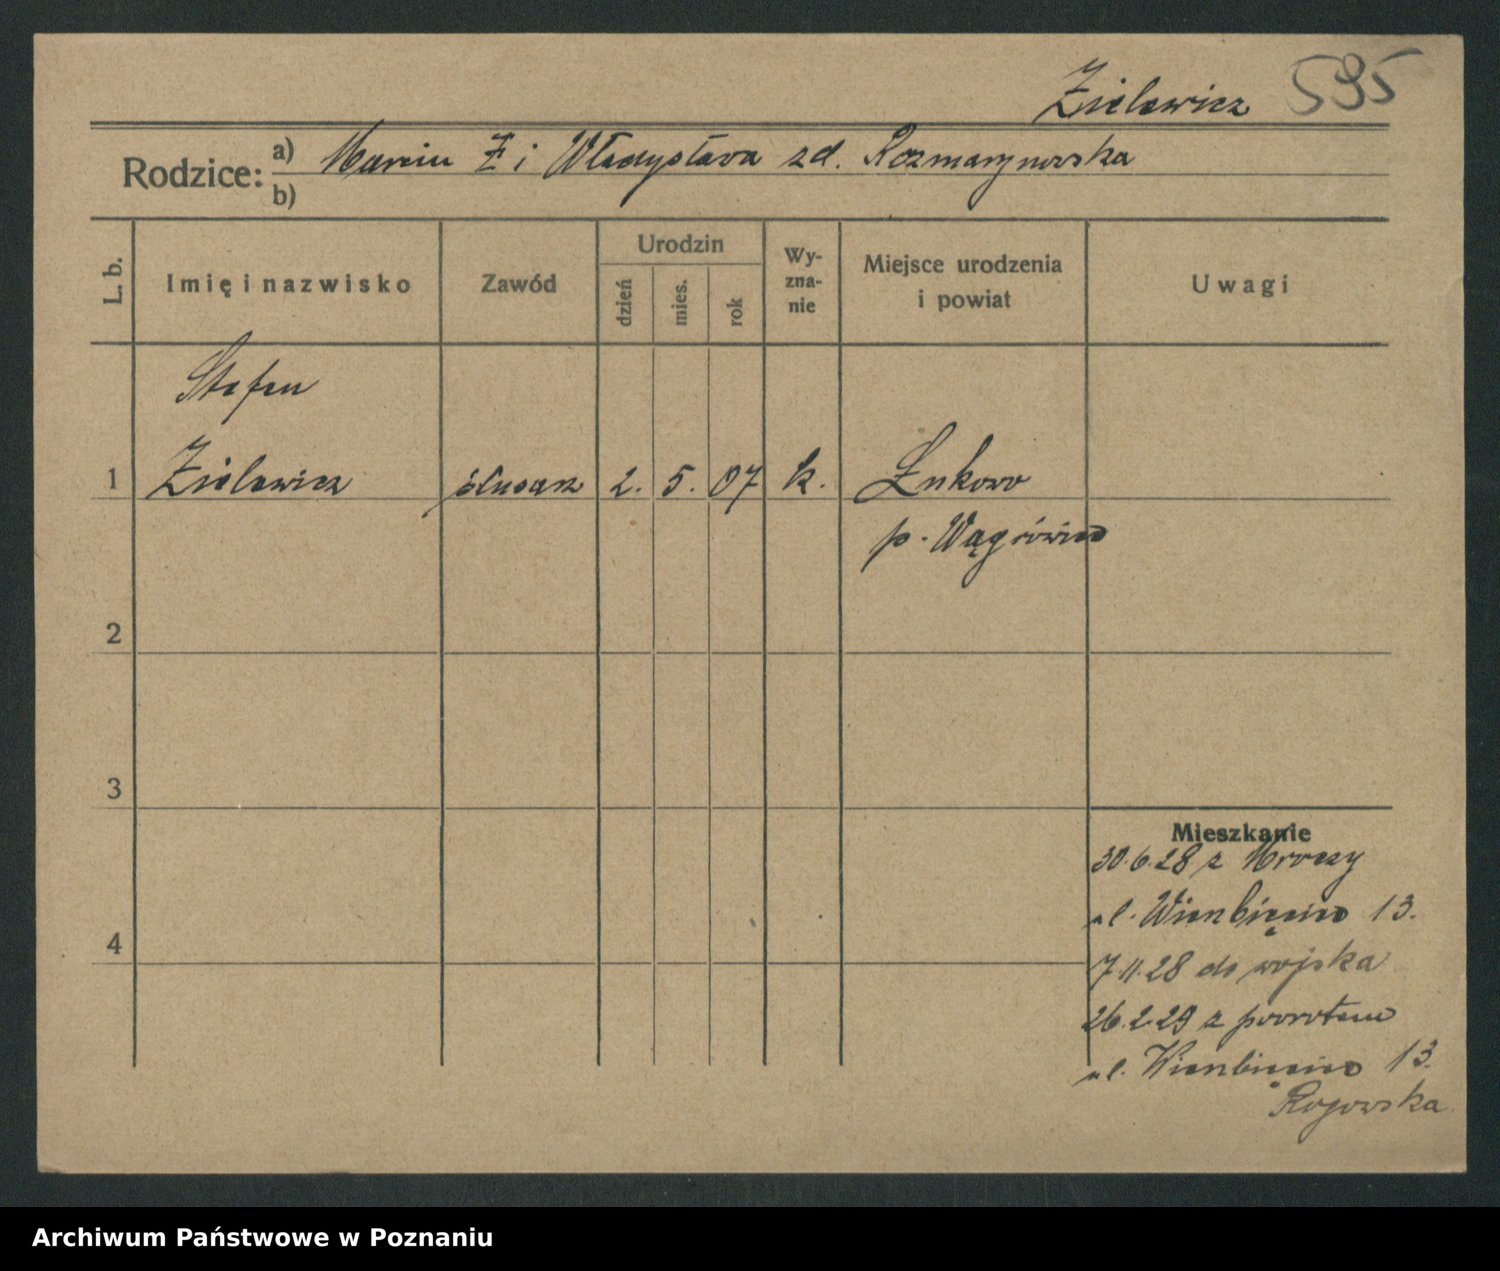 Zielewicz 595
Rodzice: a) Marcin Z i Władysława zd. Rozmarynowska
b)
L. b.
Imię i nazwisko
Zawód
Urodzin
dzień
mies.
rok
Wy-
zna-
nie
Miejsce urodzenia
i powiat
Uwagi
Stefan
1 Zielewicz ślusarz 2. 5. 07 k. Łukowo
p. Wągrówiec
2
3
4
Mieszkanie
30.6.28 z Mroczy
ul. Wierzbięcice 13.
7.11.28 do wojska
26.2.29 z powrotem
ul. Wierzbięcice 13.
Rogowska
Archiwum Państwowe w Poznaniu